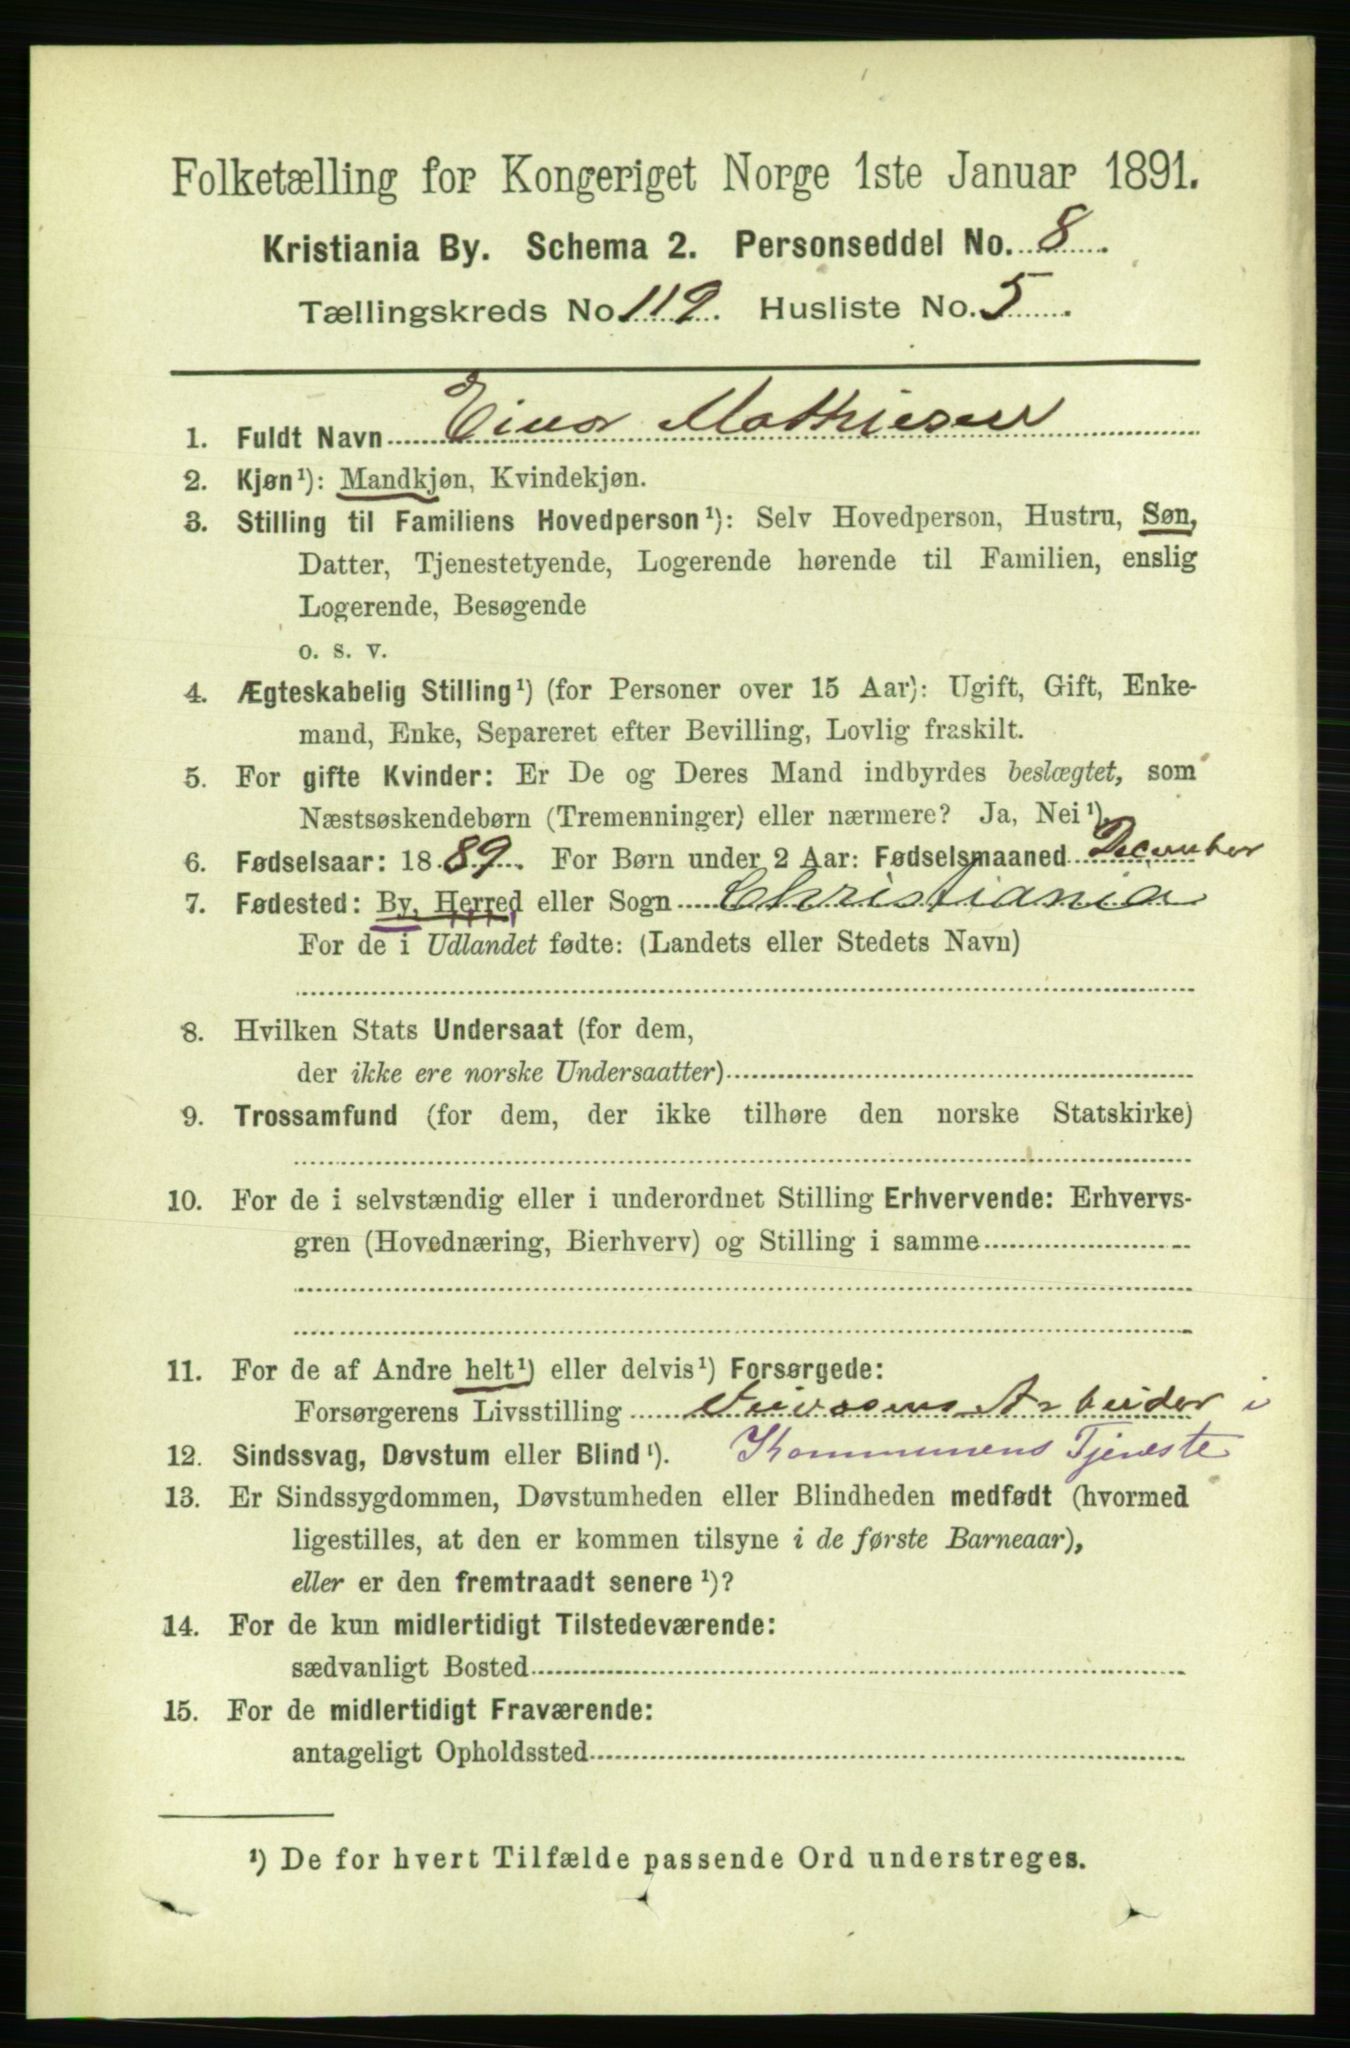 Folketælling for Kongeriget Norge 1ste Januar 1891.
Kristiania By. Schema 2. Personseddel No. 8.
Tællingskreds No 119. Husliste No. 5.
1. Fuldt Navn Einar Mathiesen
2. Kjøn¹): Mandkjøn, Kvindekjøn.
3. Stilling til Familiens Hovedperson¹): Selv Hovedperson, Hustru, Søn,
Datter, Tjenestetyende, Logerende hørende til Familien, enslig
Logerende, Besøgende
o. s. v.
4. Ægteskabelig Stilling¹) (for Personer over 15 Aar): Ugift, Gift, Enke-
mand, Enke, Separeret efter Bevilling, Lovlig fraskilt.
5. For gifte Kvinder: Er De og Deres Mand indbyrdes beslægtet, som
Næstsøskendebørn (Tremenninger) eller nærmere? Ja, Nei¹)
6. Fødselsaar: 1889. For Børn under 2 Aar: Fødselsmaaned December
7. Fødested: By, Herred eller Sogn Christiania
For de i Udlandet fødte: (Landets eller Stedets Navn)
8. Hvilken Stats Undersaat (for dem,
der ikke ere norske Undersaatter)
9. Trossamfund (for dem, der ikke tilhøre den norske Statskirke)
10. For de i selvstændig eller i underordnet Stilling Erhvervende: Erhvervs-
gren (Hovednæring, Bierhverv) og Stilling i samme
11. For de af Andre helt¹) eller delvis¹) Forsørgede:
Forsørgerens Livsstilling Arbeider i
12. Sindssvag, Døvstum eller Blind¹). Kommunens Tjeneste
13. Er Sindssygdommen, Døvstumheden eller Blindheden medfødt (hvormed
ligestilles, at den er kommen tilsyne i de første Barneaar),
eller er den fremtraadt senere¹)?
14. For de kun midlertidigt Tilstedeværende:
sædvanligt Bosted
15. For de midlertidigt Fraværende:
antageligt Opholdssted
¹) De for hvert Tilfælde passende Ord understreges.